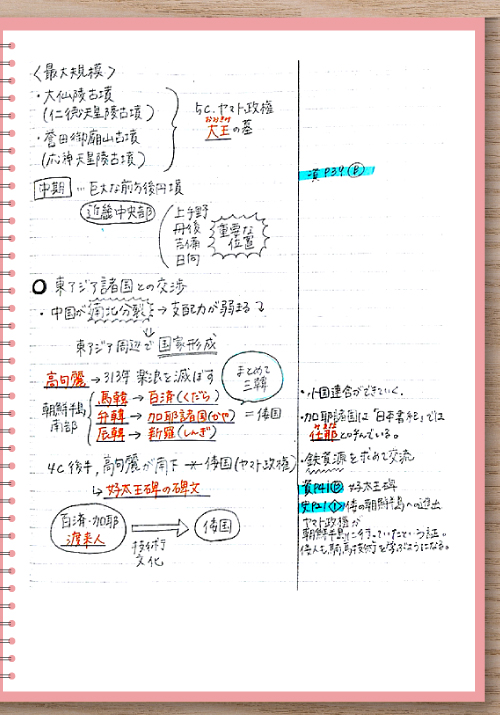 〈最大規模〉
・大仙陵古墳
(仁徳天皇陵古墳)
・誉田御廟山古墳
(応神天皇陵古墳)
5C.ヤマト政権
おおきみ
大王の墓
中期…巨大な前方後円墳
近畿中央部
上毛野
丹後
吉備
日向
重要な
位置
資P39(B)
○ 東アジア諸国との交渉
・中国が南北分裂→支配力が弱まる
東アジア周辺で国家形成
高句麗→313年 楽浪を滅ぼす
まとめて
三韓
朝鮮半島
南部
馬韓→百済(くだら)
弁韓→加耶諸国(かや)=倭国
辰韓→新羅(しんぎ)
4C後半,高句麗が南下 ✕ 倭国(ヤマト政権)
↳好太王碑の碑文
百済・加耶
渡来人
技術
文化
倭国
・小国連合ができていく。
・加耶諸国は『日本書紀』では
任那と呼んでいる。
・鉄資源を求めて交流
資P41(B) 好太王碑
史P21① 倭の朝鮮半島への進出
ヤマト政権が
朝鮮半島に行っていたという証。
倭人も騎馬技術を学ぶようになる。